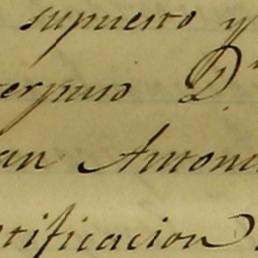 supuesto y
terpuso D.n
an Antoni
tificacion